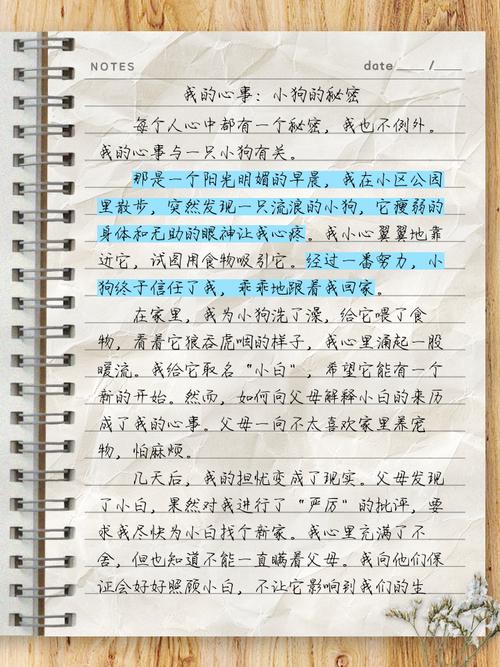 NOTES
date /
我的心事：小狗的秘密
每个人心中都有一个秘密，我也不例外。
我的心事与一只小狗有关。
那是一个阳光明媚的早晨，我在小区公园
里散步，突然发现一只流浪的小狗，它瘦弱的
身体和无助的眼神让我心疼。我小心翼翼地靠
近它，试图用食物吸引它。经过一番努力，小
狗终于信任了我，乖乖地跟着我回家。
在家里，我为小狗洗了澡，给它喂了食
物，看着它狼吞虎咽的样子，我心里涌起一股
暖流。我给它取名“小白”，希望它能有一个
新的开始。然而，如何向父母解释小白的来历
成了我的心事。父母一向不太喜欢家里养宠
物，怕麻烦。
几天后，我的担忧变成了现实。父母发现
了小白，果然对我进行了“严厉”的批评，要
求我尽快为小白找个新家。我心里充满了不
舍，但也知道不能一直瞒着父母。我向他们保
证会好好照顾小白，不让它影响到我们的生